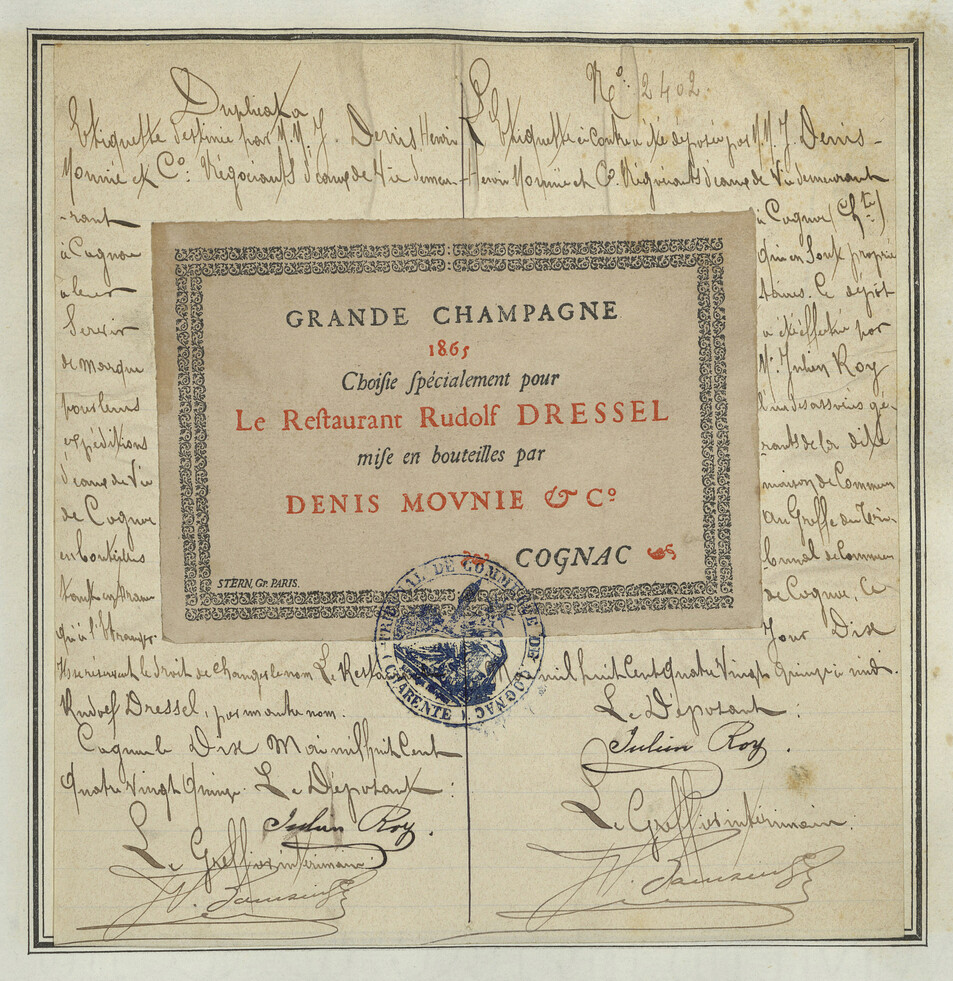 Duplicata
Etiquette destinée par M.M. J. Denis Henri
Mounié et Co: Négociants d'eaux de Vie demeu-
-rant
à Cognac
à leur
Servir
de marque
pour leurs
expéditions
d'eaux de Vie
de Cognac
en bouteilles
tant en Fran
qu'à l'Etranger
Ils se réservent le droit de changer le nom Le Resta
Rudolf Dressel, par un autre nom.
Cognac le Dix Mai mil huit Cent
quatre Vingt Quinze. Le Déposant :
Julien Roy.
Le Greffier intérimaire:
No: 2402.
L'Etiquette ci contre a été déposée par M.M. J. Denis-
-Henri Mounié et Co Négociants d'eaux de Vie demeurant
à Cognac (Chte)
qui en sont proprié
taires. Ce dépôt
a été effectué par
Mr. Julien Roy
l'un des associés gé-
rants de la dite
maison de Commerce
au Greffe du Tri-
bunal de Commerce
de Cognac, Ce
Jour Dix
mil huit Cent quatre Vingt Quinze à midi.
Le Déposant :
Julien Roy.
Le Greffier intérimaire.
GRANDE CHAMPAGNE
1865
Choiſie ſpécialement pour
Le Reſtaurant Rudolf DRESSEL
miſe en bouteilles par
DENIS MOVNIE & Co
COGNAC
STERN, Gr. PARIS.
TRIBUNAL DE COMMERCE DE COGNAC
(CHARENTE)